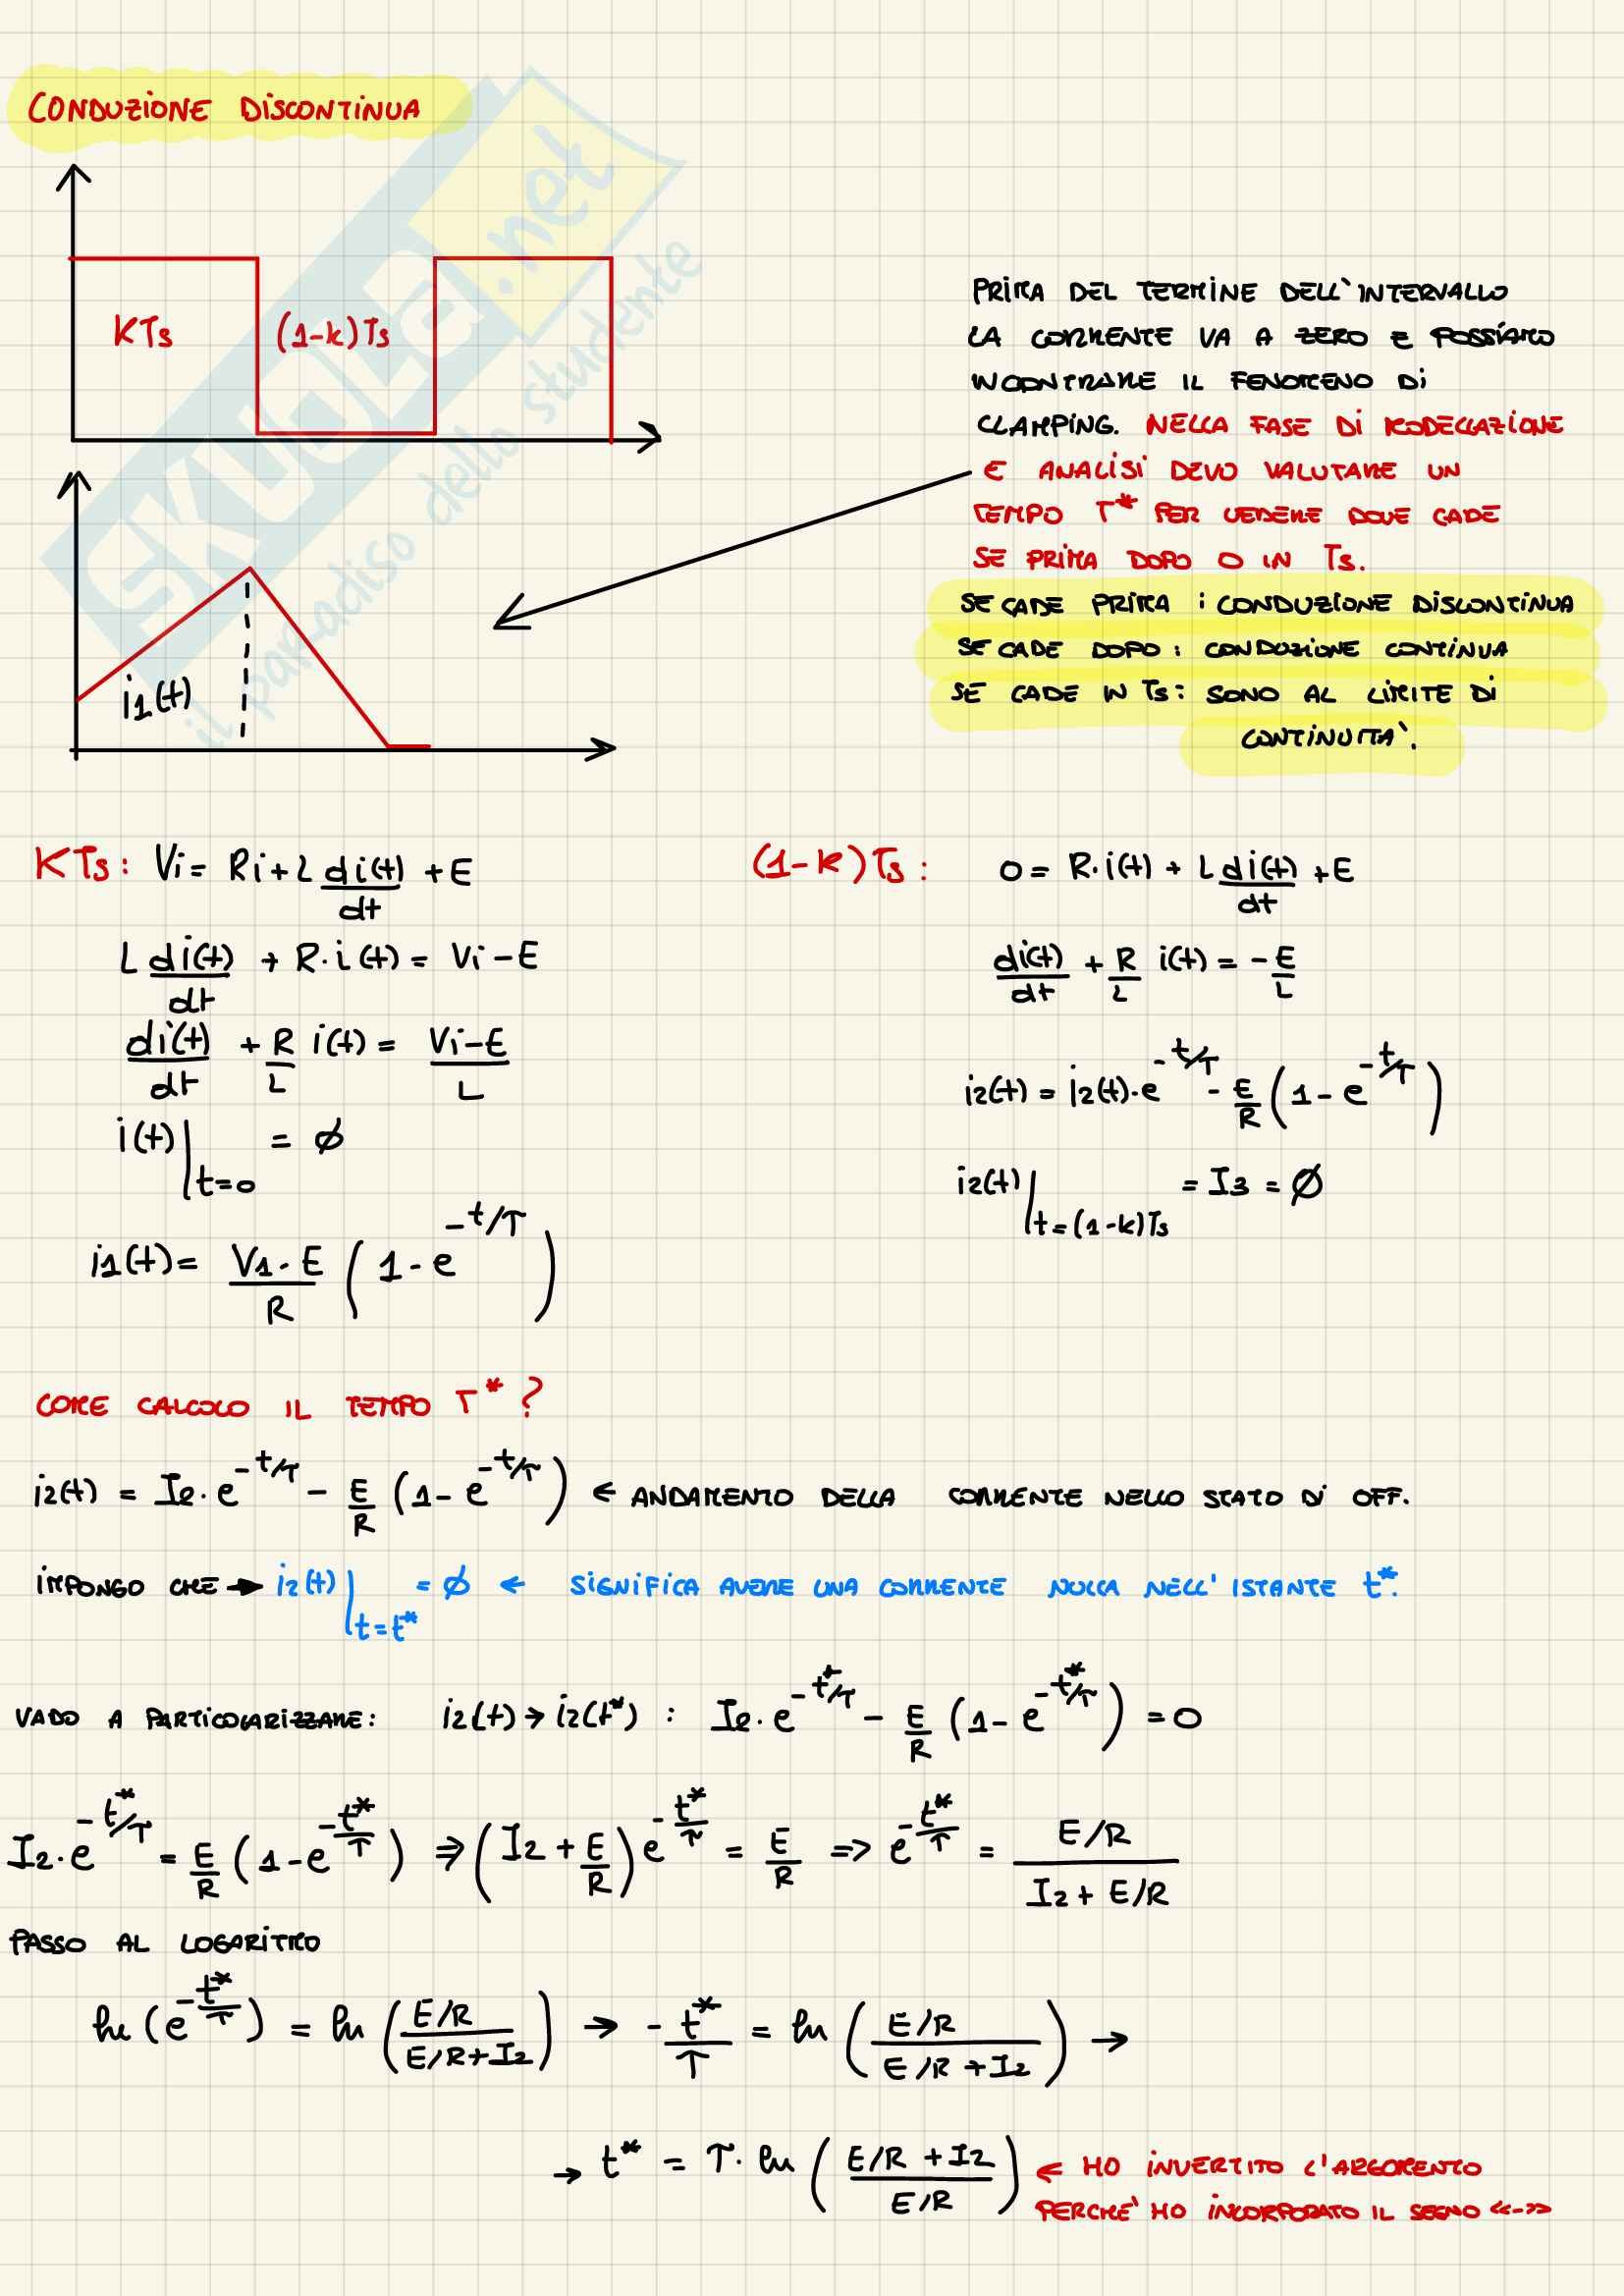 CONDUZIONE DISCONTINUA
SKUOLA.net
il paradiso dello studente
KTs (1-k)Ts
i1(t)
PRIMA DEL TERMINE DELL'INTERVALLO
LA CORRENTE VA A ZERO E POSSIAMO
INCONTRARE IL FENOMENO DI
CLAMPING. NELLA FASE DI MODELLAZIONE
E ANALISI DEVO VALUTARE UN
TEMPO T* PER VEDERE DOVE CADE
SE PRIMA DOPO O IN Ts.
SE CADE PRIMA : CONDUZIONE DISCONTINUA
SE CADE DOPO : CONDUZIONE CONTINUA
SE CADE IN Ts : SONO AL LIMITE DI
CONTINUITA'.
KTs: Vi = Ri + L di(t)/dt + E
L di(t)/dt + R·i(t) = Vi - E
di(t)/dt + R/L i(t) = (Vi-E)/L
i(t)|t=0 = ∅
i1(t) = (V1-E)/R (1 - e^-t/τ)
(1-k)Ts: 0 = R·i(t) + L di(t)/dt + E
di(t)/dt + R/L i(t) = - E/L
i2(t) = i2(t)·e^-t/τ - E/R (1 - e^-t/τ)
i2(t)|t=(1-k)Ts = I3 = ∅
COME CALCOLO IL TEMPO T* ?
i2(t) = I2·e^-t/τ - E/R (1 - e^-t/τ) ← ANDAMENTO DELLA CORRENTE NELLO STATO DI OFF.
IMPONGO CHE → i2(t)|t=t* = ∅ ← SIGNIFICA AVERE UNA CORRENTE NULLA NELL'ISTANTE t*.
VADO A PARTICOLARIZZARE: i2(t) → i2(t*) : I2·e^-t*/τ - E/R (1 - e^-t*/τ) = 0
I2·e^-t*/τ = E/R (1 - e^-t*/τ) ⇒ (I2 + E/R) e^-t*/τ = E/R ⇒ e^-t*/τ = (E/R)/(I2 + E/R)
PASSO AL LOGARITMO
ln (e^-t*/τ) = ln ((E/R)/(E/R+I2)) → - t*/τ = ln ((E/R)/(E/R+I2)) →
→ t* = τ· ln ((E/R + I2)/(E/R)) ← HO INVERTITO L'ARGOMENTO
PERCHE' HO INCORPORATO IL SEGNO <<->>